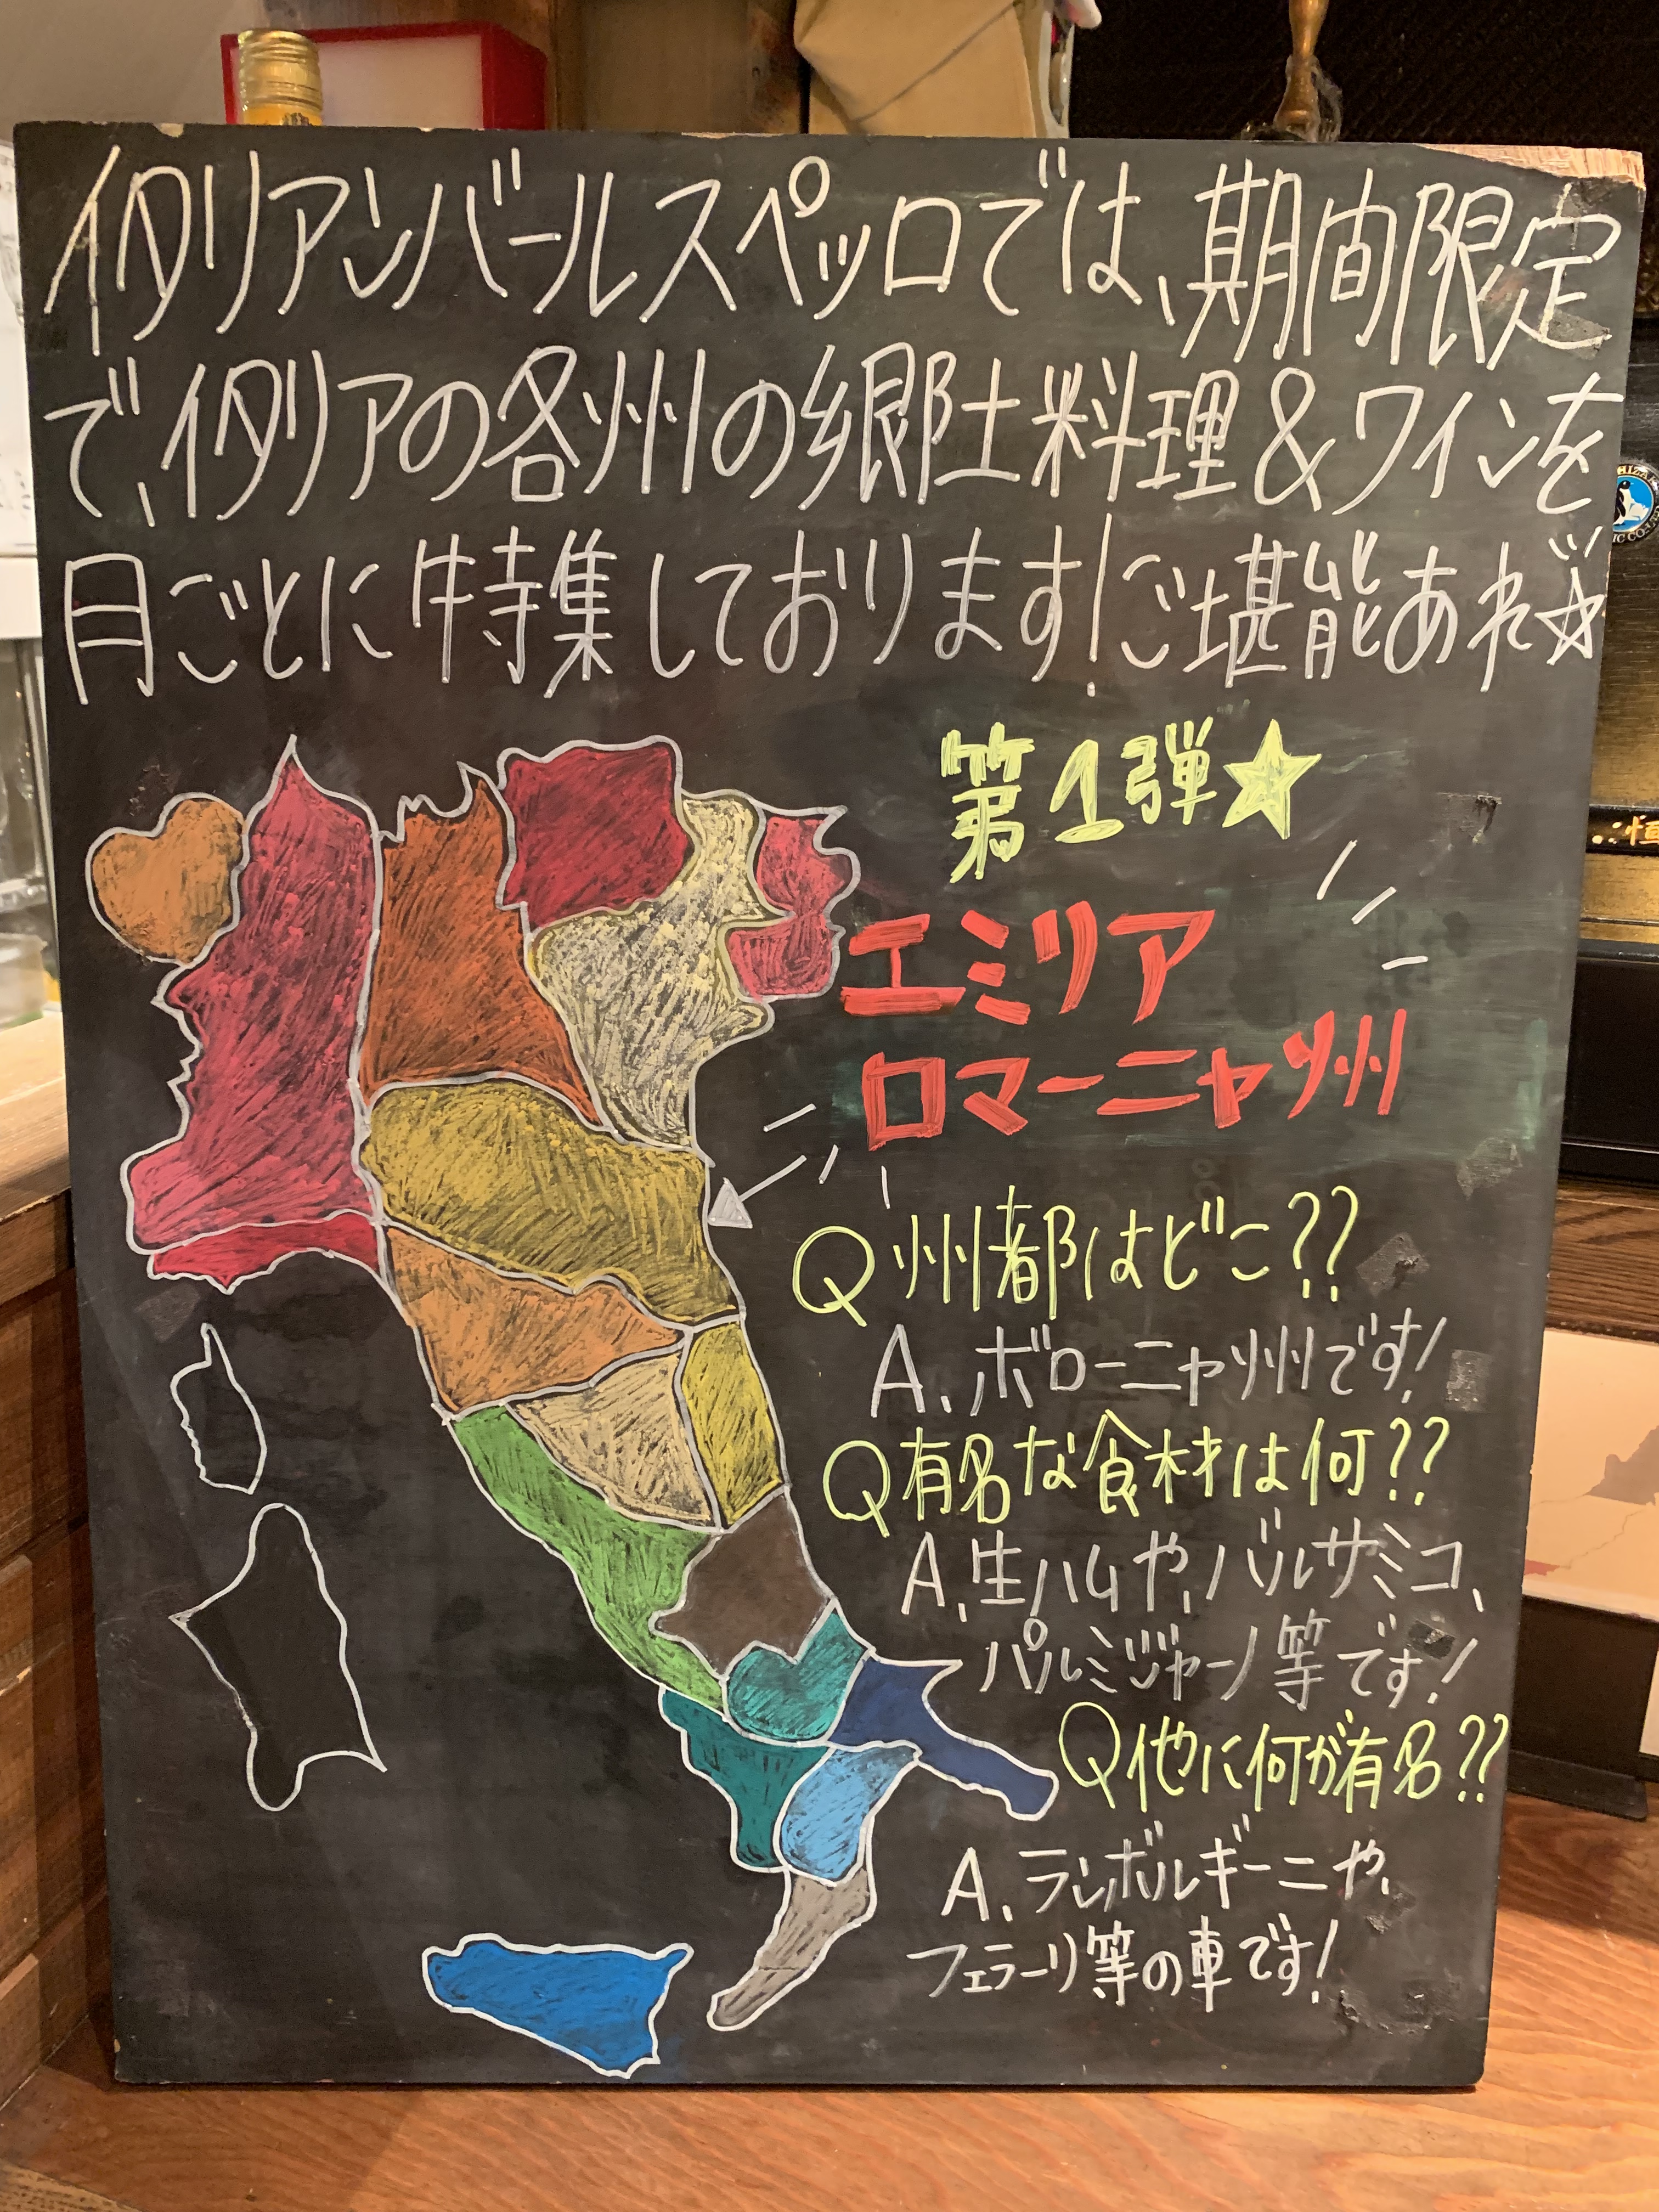 イタリアンバールスペッロでは、期間限定
で、イタリアの各州の郷土料理&ワインを
月ごとに特集しております!ご堪能あれ☆
第1弾★
エミリア
ロマーニャ州
Q 州都はどこ??
A、ボローニャ州です!
Q 有名な食材は何??
A、生ハムや、バルサミコ、
パルミジャーノ等です!
Q 他に何が有名??
A、ランボルギーニや、
フェラーリ等の車です!